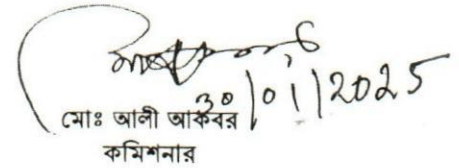 30/01/2025
মোঃ আলী আকবর
কমিশনার